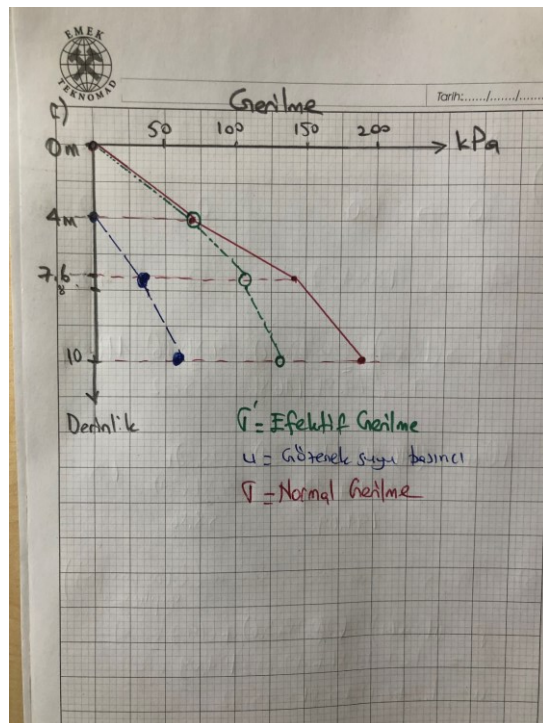 EMEK
TEKNOMAD
Tarih:....../....../......
Gerilme
50 100 150 200 kPa
0m
4m
7,6
8
10
Derinlik
σ' = Efektif Gerilme
u = Gözenek suyu basıncı
σ = Normal Gerilme